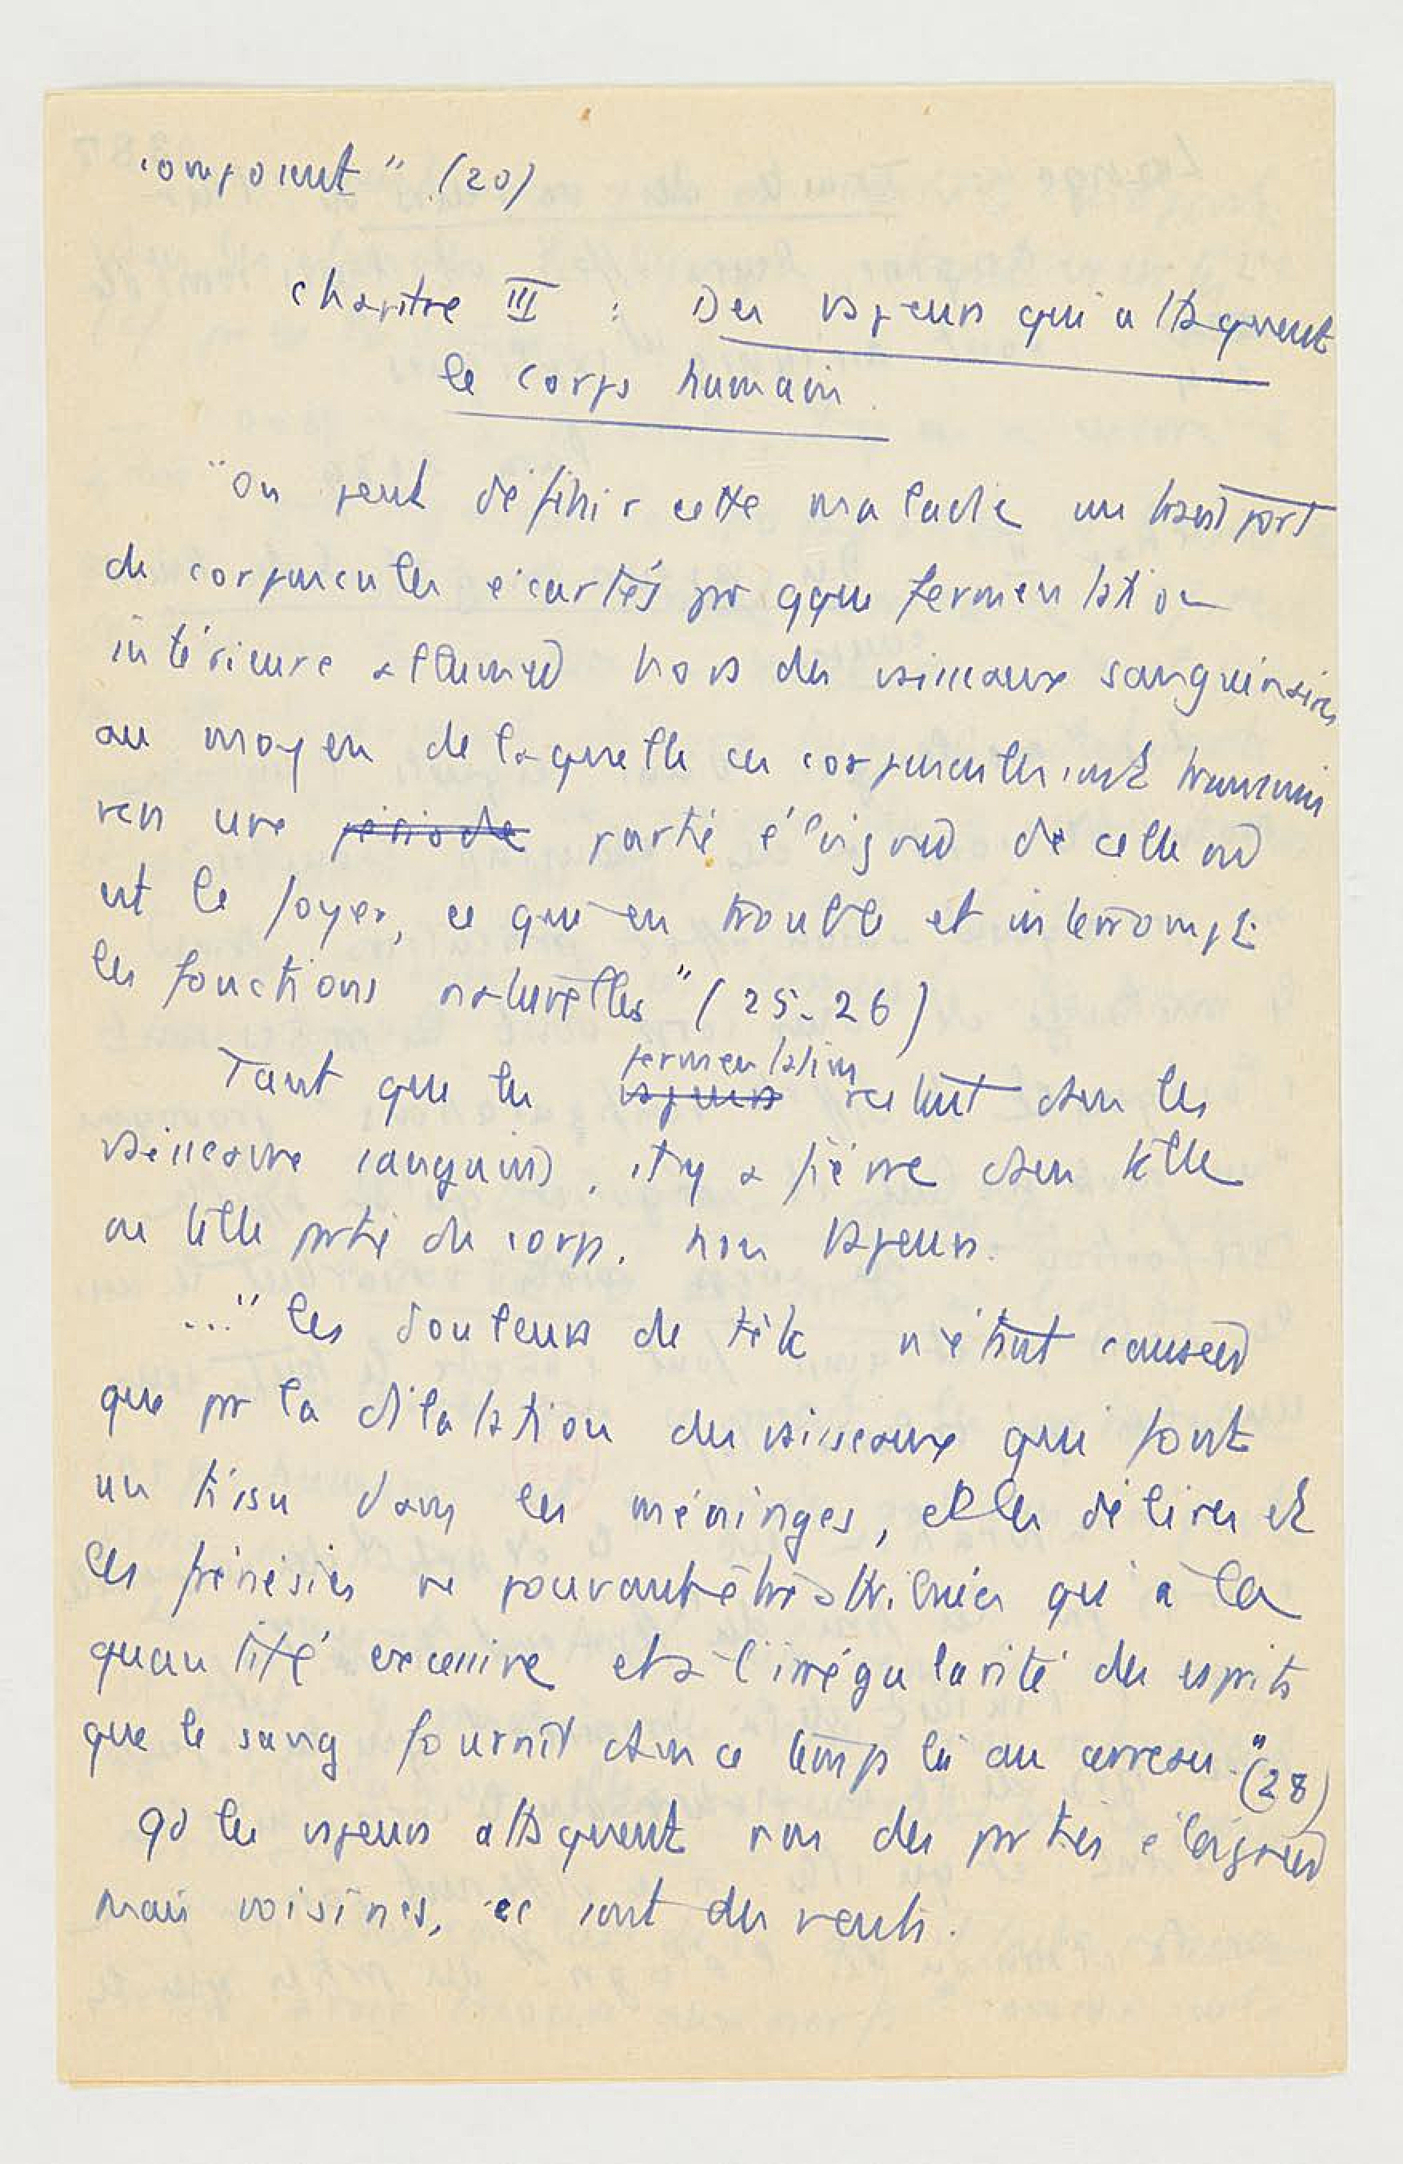 composent" (20)
Chapitre III : Des vapeurs qui attaquent
le corps humain.
"On peut définir cette maladie un transport
de corpuscules écartés par qque fermentation
intérieure allumée hors des vaisseaux sanguinaires
au moyen de laquelle ces corpuscules sont transmis
vers une période partie éloignée de celle où
est le foyer, ce qui en trouble et interrompt
les fonctions naturelles" (25-26)
Tant que les vapeurs fermentations restent dans les
vaisseaux sanguins, il y a fièvre dans telle
ou telle partie du corps. non vapeurs.
..." les douleurs de tête n'étant causées
que par la dilatation des vaisseaux qui font
un tissu dans les méninges, et les délires et
les frénésies ne pouvant être attribuées qu'à la
quantité excessive et à l'irrégularité des esprits
que le sang fournit dans ce temps là au cerveau." (28)
qd les vapeurs attaquent non des parties éloignées
mais voisines, ce sont des vents.